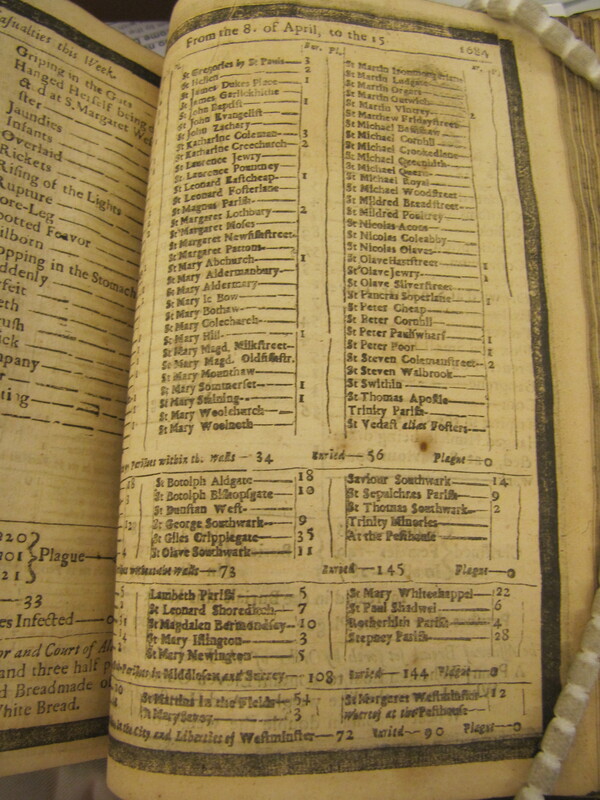 asualties this Week.
Griping in the Guts
Hanged Herself being
& d at S. Margaret
ster
Jaundies
Infants
Overlaid
Rickets
Rising of the Lights
Rupture
ore-Leg
potted Feavor
ilborn
opping in the Stomach
ddenly
rfeit
eth
rush
ick
mpany
ting
Plague
33
es Infected—0
or and Court of
and three half
d Breadmade of
White Bread.
From the 8. of April, to the 15. 1684
Bur. Pl.
St Gregories by St Pauls— 3
St Hellen— 2
St James Dukes Place— 1
St James Garlickhithe
St John Baptist— 1
St John Evangelist
St John Zachary
St Katharine Coleman— 3
St Katharine Creechurch— 2
St Laurence Jewry
St Laurence Pountney
St Leonard Eastcheap— 1
St Leonard Fosterlane
St Magnus Parish
St Margaret Lothbury— 2
St Margaret Moses
St Margaret Newfishstreet
St Margaret Pattons
St Mary Abchurch— 1
St Mary Aldermanbury
St Mary Aldermary
St Mary le Bow
St Mary Bothaw
St Mary Colechurch
St Mary Hill— 1
St Mary Magd. Milkstreet
St Mary Magd. Oldfishstr.
St Mary Mounthaw
St Mary Sommerset— 1
St Mary Staining— 1
St Mary Woolchurch
St Mary Woolnoth
St Martin Ludgate
St Martin Orgars
St Martin Outwich
St Martin Vintrey— 2
St Matthew Fridaystreet
St Michael Bassishaw
St Michael Cornhil
St Michael Crookedlane
St Michael Queenhith
St Michael Quern
St Michael Royal
St Michael Woodstreet
St Mildred Breadstreet
St Mildred Poultrey
St Nicolas Acons
St Nicolas Coleabby
St Nicolas Olaves
St Olave Hartstreet— 1
St Olave Jewry— 1
St Olave Silverstreet
St Pancras Soperlane— 1
St Peter Cheap
St Peter Cornhil
St Peter Paulswharf— 1
St Peter Poor— 1
St Steven Colemanstreet— 2
St Steven Walbrook
St Swithin
St Thomas Apostle
Trinity Parish
St Vedast alias Fosters
Parishes within the Walls— 34 Buried— 56 Plague—0
St Botolph Aldgate— 18
St Botolph Bishopsgate— 10
St Dunstan West
St George Southwark— 9
St Giles Cripplegate— 35
St Olave Southwark— 11
Saviour Southwark— 14
St Sepulchres Parish— 9
St Thomas Southwark— 2
Trinity Minories
At the Pesthouse
without the Walls— 73 Buried— 145 Plague—0
Lambeth Parish— 5
St Leonard Shoreditch— 7
St Magdalen Bermondsey— 10
St Mary Islington— 3
St Mary Newington— 5
St Mary Whitechappel— 22
St Paul Shadwel— 6
Rotherhith Parish— 4
Stepney Parish— 28
Parishes in Middlesex and Surrey— 108 Buried— 144 Plague—0
St Martins in the Fields— 54
St Mary Savoy— 3
St Margaret Westminster— 12
Whereof at the Pesthouse
in the City and Liberties of Westminster— 72 Buried— 90 Plague—0